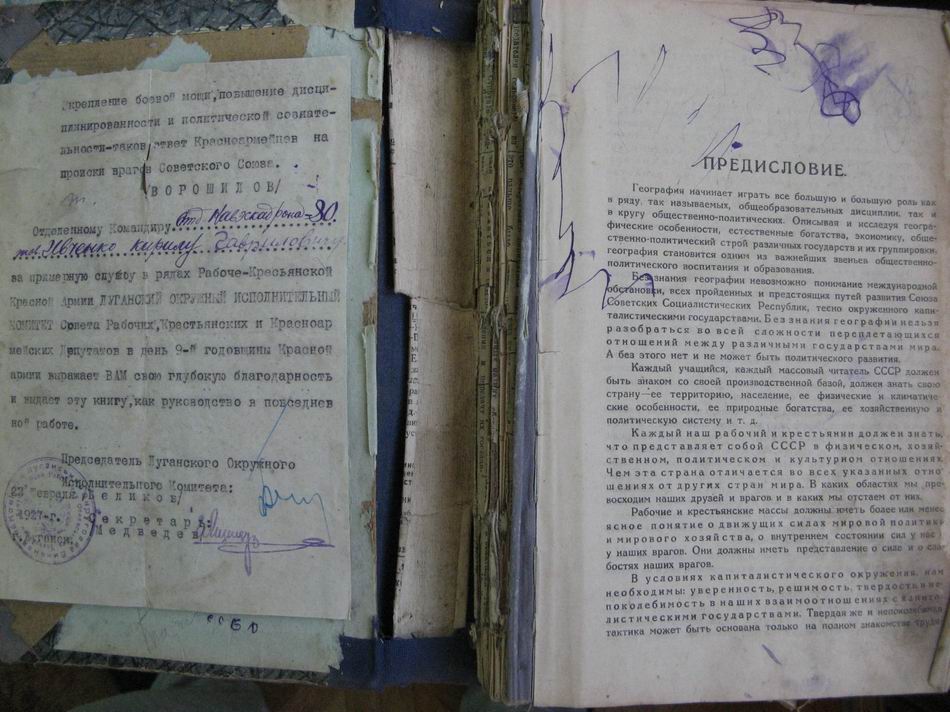 Укрепление боевой мощи, повышение дисци-
плинированности и политической сознате-
льности-таков ответ Красноармейцев на
происки врагов Советского Союза.
/ВОРОШИЛОВ/
Отделенному Командиру
Кириллу Гаврииловичу
за примерную службу в рядах Рабоче-Крестьянской
Красной Армии ЛУГАНСКИЙ ОКРУЖНЫЙ ИСПОЛНИТЕЛЬНЫЙ
КОМИТЕТ Совета Рабочих, Крестьянских и Красноар
мейских Депутатов в день 9-й годовщины Красной
армии выражает ВАМ свою глубокую благодарность
и выдает эту книгу, как руководство в повседнев
ной работе.
Председатель Луганского Окружного
Исполнительного Комитета:
23 февраля /Беликов/
1927-г. Секретарь:
г. Луганск. Медведев
ПРЕДИСЛОВИЕ.
География начинает играть все большую и большую роль как
в ряду, так называемых, общеобразовательных дисциплин, так и
в кругу общественно-политических. Описывая и исследуя геогра-
фические особенности, естественные богатства, экономику, обще-
ственно-политический строй различных государств и их группировки,
география становится одним из важнейших звеньев общественно-
политического воспитания и образования.
Без знания географии невозможно понимание международной
обстановки, всех пройденных и предстоящих путей развития Союза
Советских Социалистических Республик, тесно окруженного капи-
талистическими государствами. Без знания географии нельзя
разобраться во всей сложности переплетающихся
отношений между различными государствами мира.
А без этого нет и не может быть политического развития.
Каждый учащийся, каждый массовый читатель СССР должен
быть знаком со своей производственной базой, должен знать свою
страну—ее территорию, население, ее физические и климатиче-
ские особенности, ее природные богатства, ее хозяйственную и
политическую систему и т. д.
Каждый наш рабочий и крестьянин должен знать,
что представляет собой СССР в физическом, хозяй-
ственном, политическом и культурном отношениях.
Чем эта страна отличается во всех указанных отно-
шениях от других стран мира. В каких областях мы пре-
восходим наших друзей и врагов и в каких мы отстаем от них.
Рабочие и крестьянские массы должны иметь более или менее
ясное понятие о движущих силах мировой политики
и мирового хозяйства, о внутреннем состоянии сил у нас и
у наших врагов. Они должны иметь представление о силе и о сла-
бостях наших врагов.
В условиях капиталистического окружения, нам
необходимы: уверенность, решимость, твердость и не-
поколебимость в наших взаимоотношениях с капита-
листическими государствами. Твердая же и непоколебимая
тактика может быть основана только на полном знакомстве трудя-